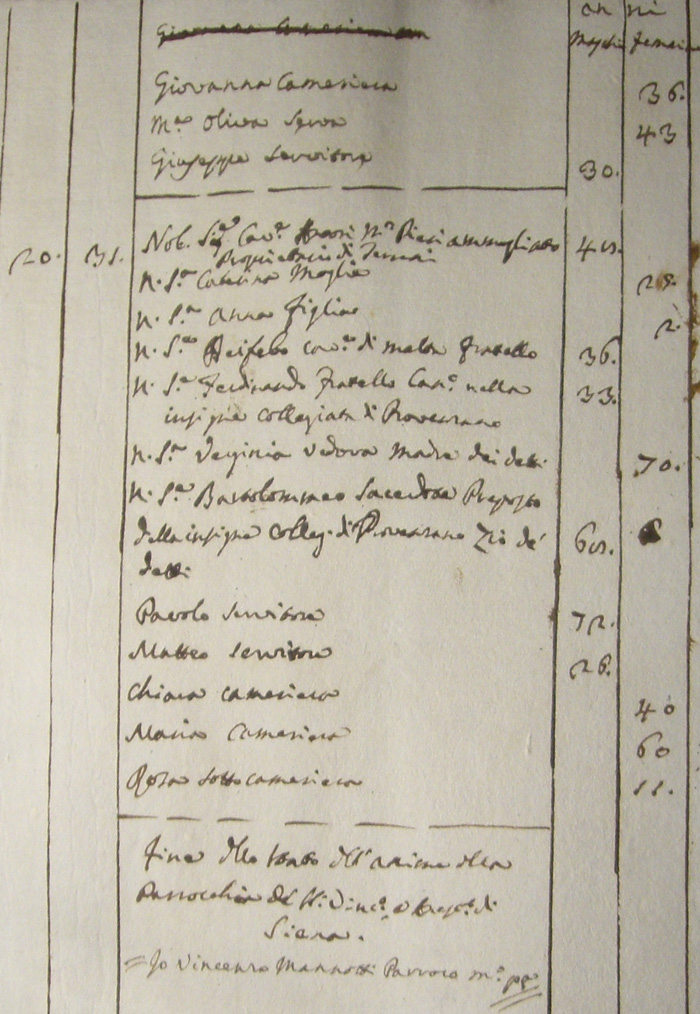 anni
Maschi Femine
Giovanna Cameriera 36.
M.a Oliva Serva 43
Giuseppe Servitore 30.
20. 31. Nob. Sig.r Cav.e M.a Pieri ammogliato 40.
Proprietario di Terreni
N. S.ra Caterina Moglie 28.
N. S.ra Anna figlia 2.
N. S.r cav.e di malta fratello 36.
N. S.r Ferdinando fratello Can.o nella 33.
insigne Collegiata di Provenzano
N. S.ra Verginia vedova Madre dei detti 70.
N. S.r Bartolommeo Sacerdote Preposto
della insigne Colleg. di Provenzano Zio de' 60.
detti
Pavolo Servitore 72.
Matteo Servitore 26.
Chiara cameriera 40
Maria Cameriera 60
Rosa sotto cameriera 11.
fine dello stato dell'anime della
Parrocchia de' SS. Vinc.o e Anast.o di
Siena.
= Io Vincenzo Mannotti Parroco m.o pp.a